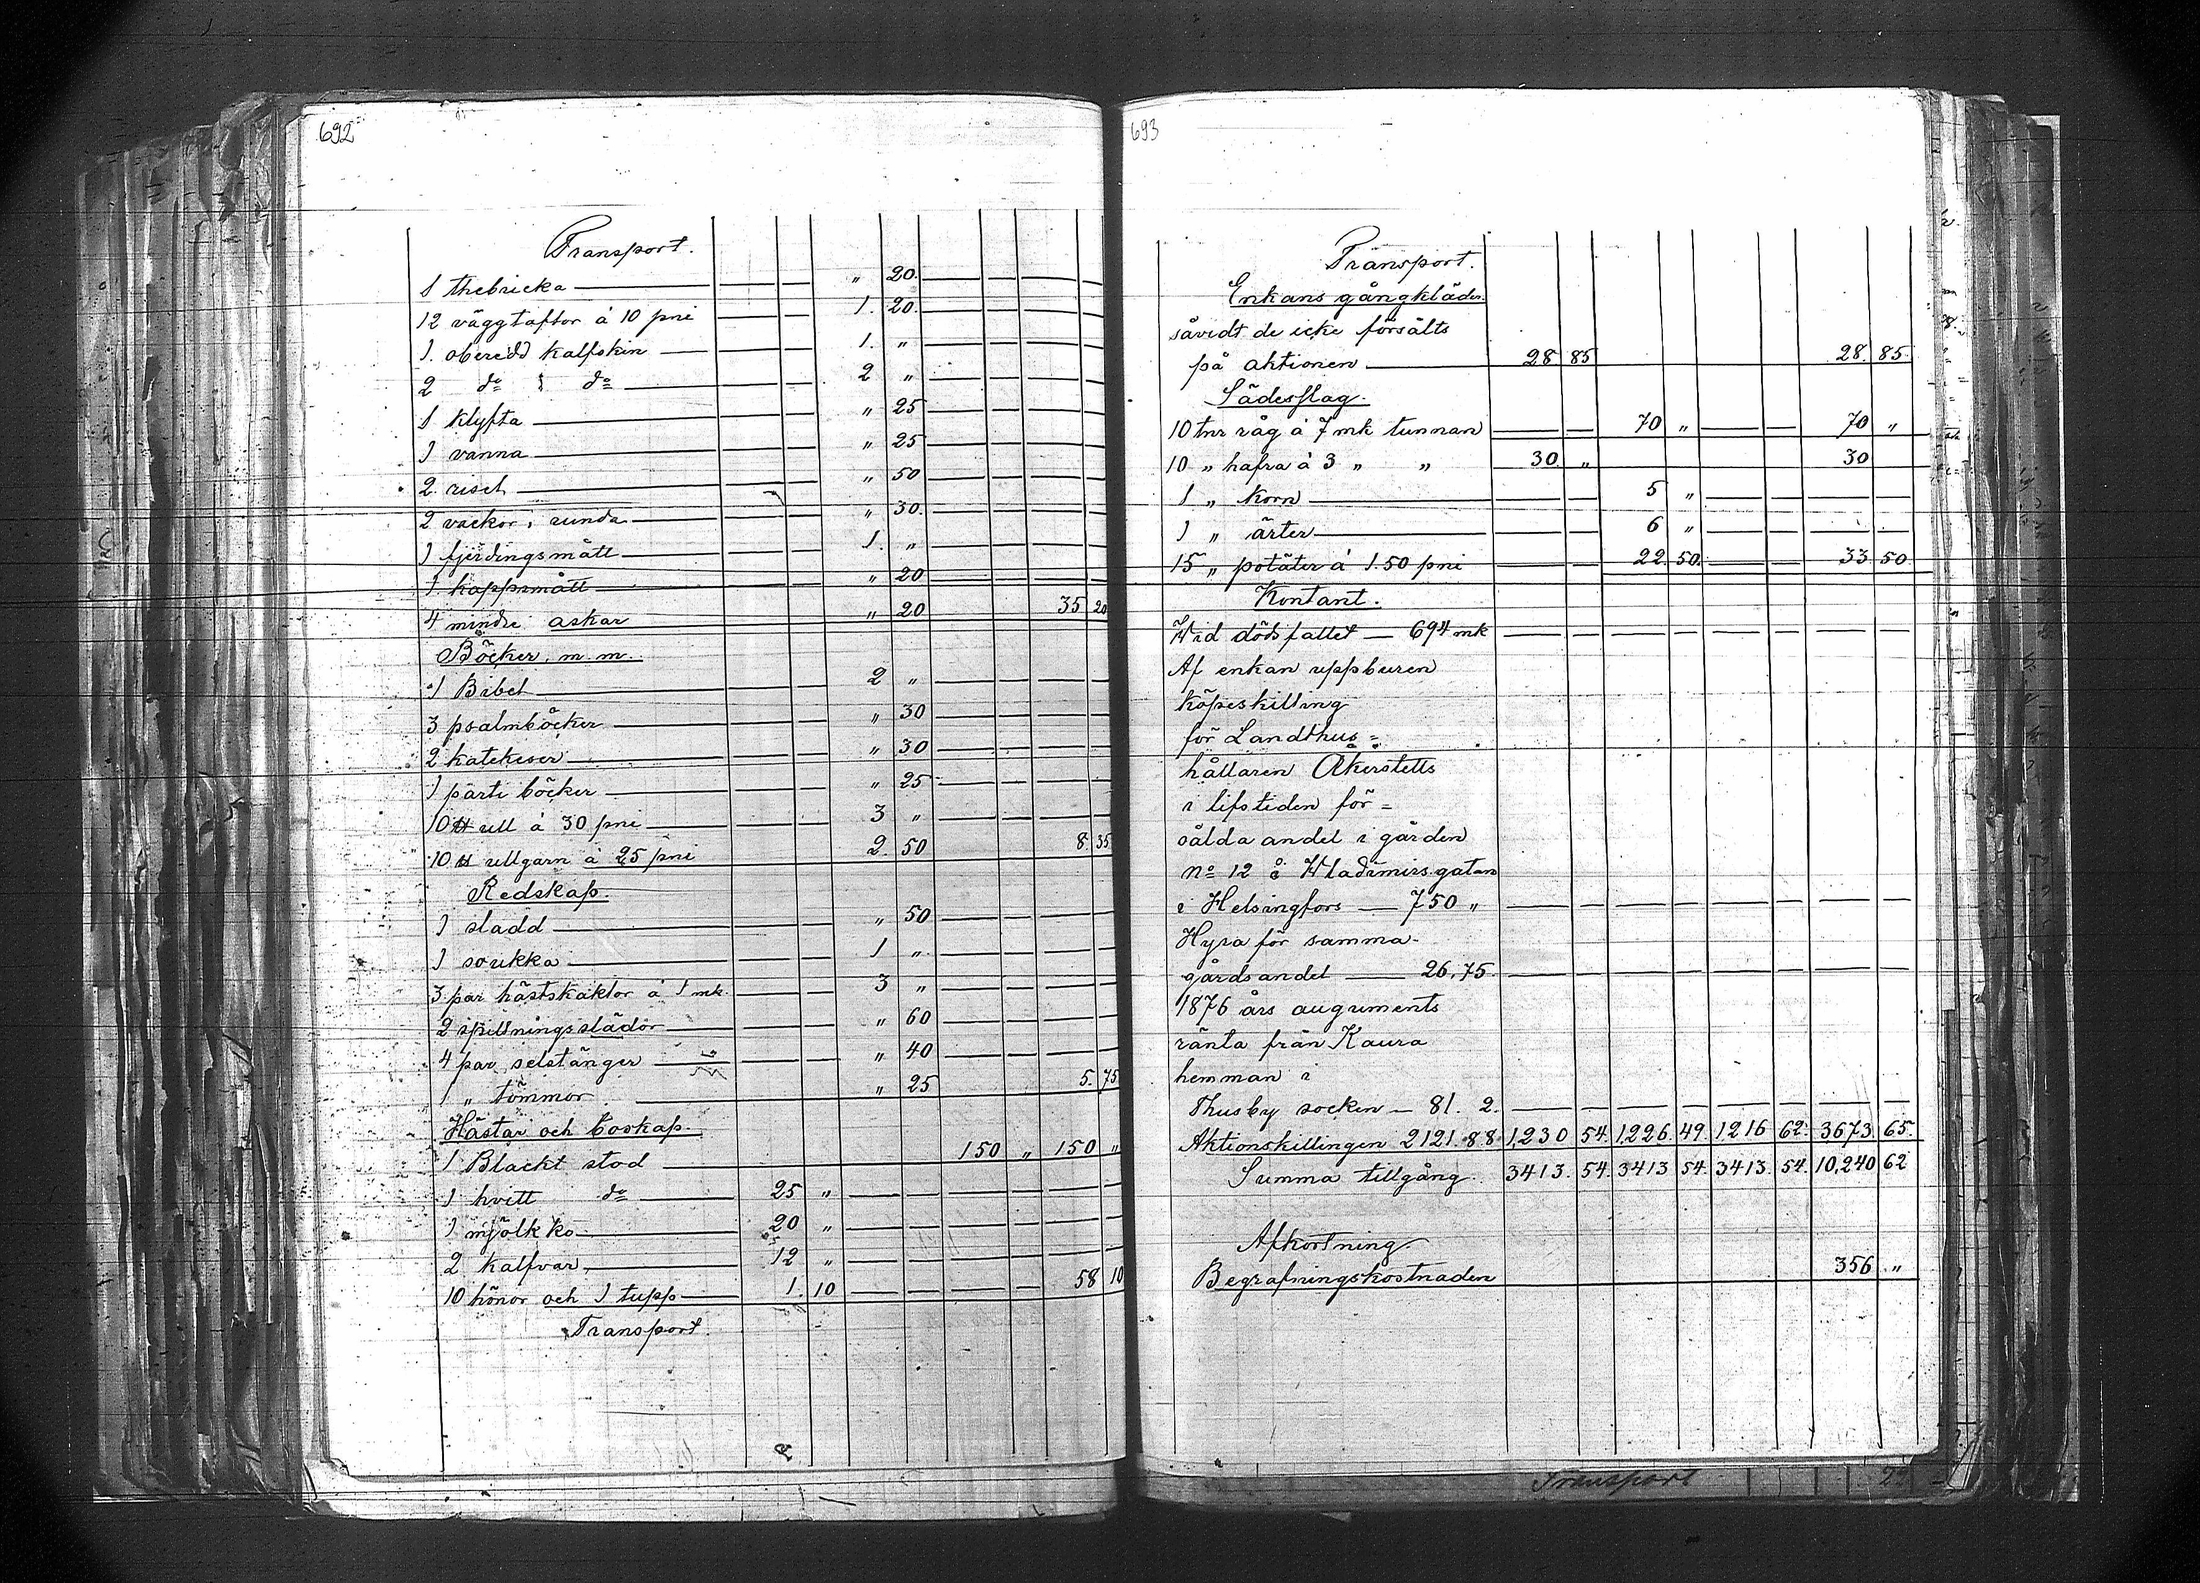 692
Transport.
1 thebricka " 20.
12 väggtaflor à 10 pni 1. 20.
1. oberedd kalfskin 1. "
2 do 1 do 2 "
1 klyfta " 25
1 vanna " 25
2 risel " 50
2 vackor, runda " 30.
1 fjerdingsmått 1. "
1 kappsmått " 20
4 mindre askar " 20 35 20
Böcker, m. m.
1 Bibel 2 "
3 psalmböcker " 30
2 katekeser " 30
1 parti böcker " 25
10 ℔ ull à 30 pni 3 "
10 ℔ ullgarn à 25 pni 2. 50 8. 35
Redskap.
1 sladd " 50
1 soukka 1 "
3 par hästskaklor à 1 mk. 3 "
2 spillningsslädor " 60
4 par selstänger " 40
1 " tömmor " 25 5. 75
Hästar och boskap.
1 Blackt stod 150 " 150 "
1 hvitt do 25 "
1 mjölkko 20 "
2 kalfvar 12 "
10 hönor och 1 tupp 1. 10 58 10
Transport.
693
Transport.
Enkans gångkläder.
såvidt de icke försålts
på aktionen 28 85 28. 85.
Sädesslag.
10 tnr råg à 7 mk tunnan 70 " 70 "
10 " hafra à 3 " " 30 " 30
1 " korn 5 "
1 " ärter 6 "
15 " potäter à 1.50 pni 22. 50. 33 50
Kontant.
Wid dödsfallet — 694 mk
Af enkan uppburen
köpeskilling
för Landthus=
hållaren Åkerstetts
i lifstiden för=
sålda andel i gården
No 12 å Wladimirsgatan
i Helsingfors — 750 "
Hyra för samma
gårdsandel — 26,75.
1876 års auguments
ränta från Kaura
hemman i
Thusby socken — 81. 2.
Aktionskillingen 2121.88 1,230 54. 1,226. 49. 1216 62. 3673 65.
Summa tillgång. 3413. 54. 3413 54. 3413. 54. 10,240 62
Afkortning.
Begrafningskostnaden 356 "
Transport